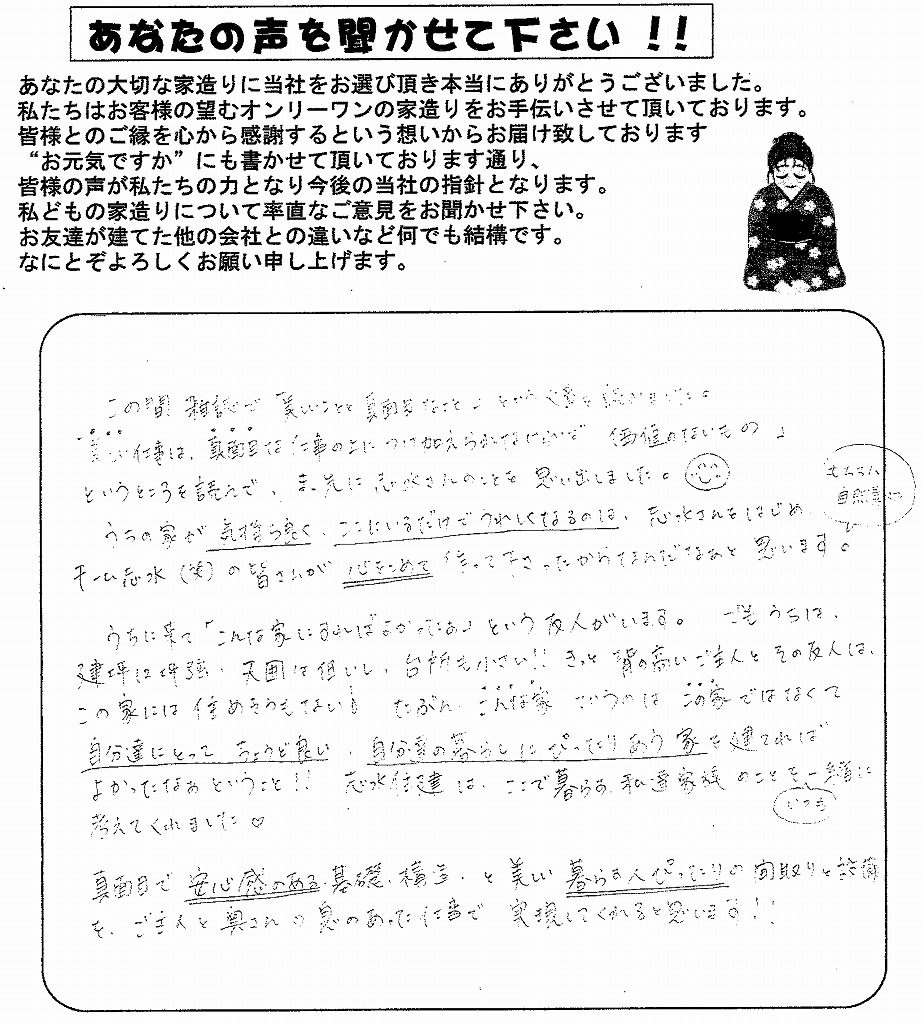 あなたの声を聞かせて下さい！！
あなたの大切な家造りに当社をお選び頂き本当にありがとうございました。
私たちはお客様の望むオンリーワンの家造りをお手伝いさせて頂いております。
皆様とのご縁を心から感謝するという想いからお届け致しております
“お元気ですか”にも書かせて頂いております通り、
皆様の声が私たちの力となり今後の当社の指針となります。
私どもの家造りについて率直なご意見をお聞かせ下さい。
お友達が建てた他の会社との違いなど何でも結構です。
なにとぞよろしくお願い申し上げます。
この間 雑誌で「美しいことと真面目なこと」という文章を読みました。
美しい仕事は、真面目な仕事の上につけ加えられなければ 価値のないもの」
というところを読んで、真先に志水さんのことを思い出しました。
もちろん
自然美に
うちの家が気持ち良く、ここにいるだけでうれしくなるのは、志水さんをはじめ
チーム志水（笑）の皆さんが 心をこめて 作って下さったからなんだなぁと思います。
うちに来て「こんな家にすればよかったぁ」という友人がいます。 でもうちは、
建坪は 坪強、天囲は低いし、台所も小さい!! きっと 背の高いご主人とその友人は、
この家には住めそうもない! たぶん、こんな家 というのは この家ではなくて
自分達にとって ちょうど良い、自分達の暮らしにぴったりあう 家を建てれば
よかったなぁということ!! 志水住建は、ここで暮らす、私達家族のことを、一緒に
いつも
考えてくれました♡
真面目で 安心感のある 基礎、構造、と 美しい 暮らす人ぴったりの間取りと設備
を、ご主人と奥さんの息のあった仕事で 実現してくれると思います!!